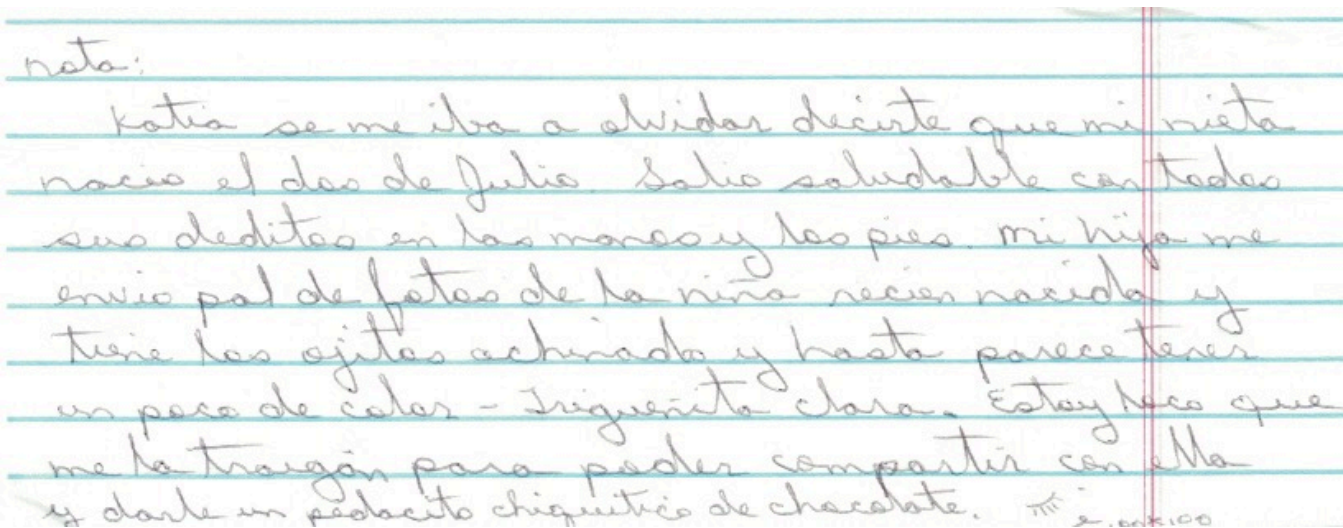 nota:
Katia se me iba a olvidar decirte que mi nieta
nacio el dos de Julio. Salio saludable con todos
sus deditos en las manos y los pies. mi hija me
envio pal de fotos de la niña recien nacida y
tiene los ojitos achinado y hasta parece tener
un poco de color - Trigueñita clara. Estoy loco que
me la traigan para poder compartir con ella
y darle un pedacito chiquitico de chocolate.